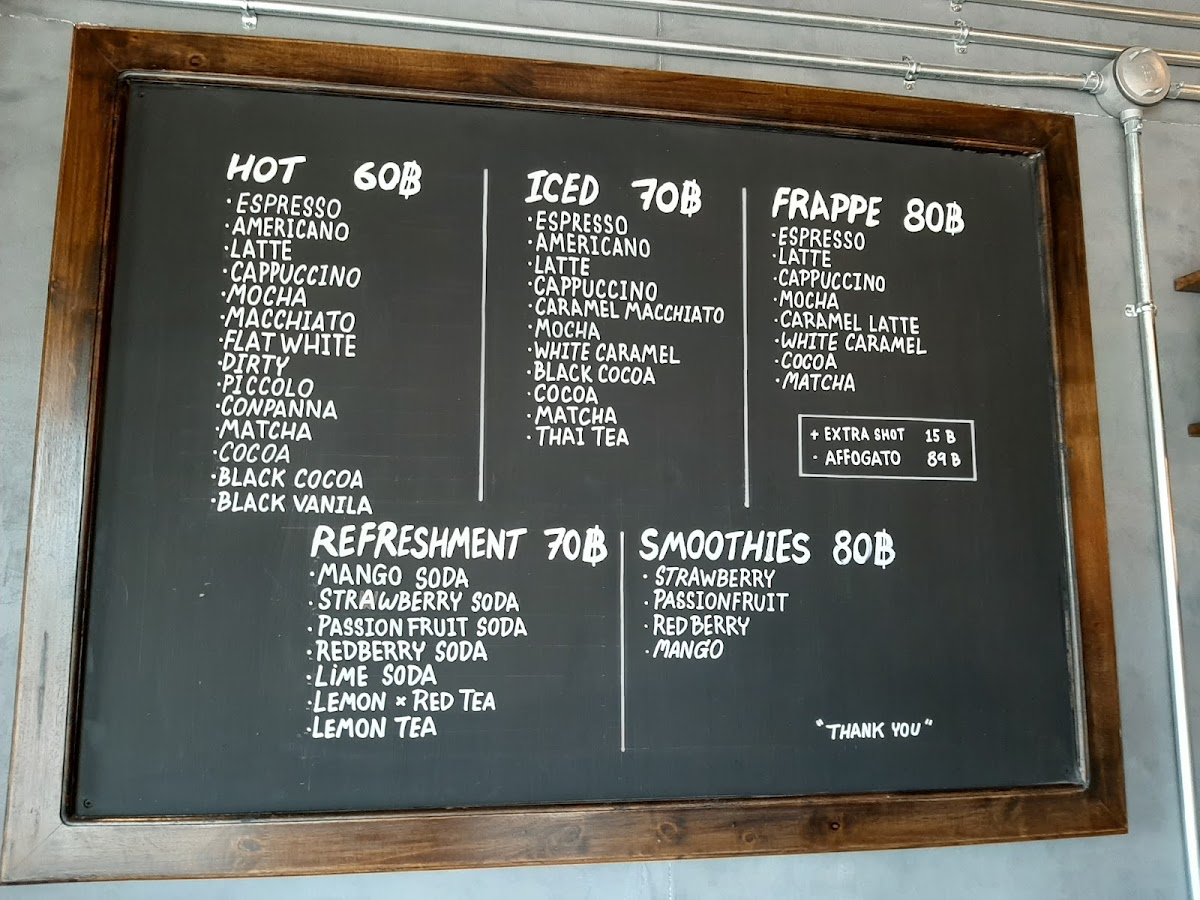 HOT 60฿
· ESPRESSO
· AMERICANO
· LATTE
· CAPPUCCINO
· MOCHA
· MACCHIATO
· FLAT WHITE
· DIRTY
· PICCOLO
· CONPANNA
· MATCHA
· COCOA
· BLACK COCOA
· BLACK VANILA
ICED 70฿
· ESPRESSO
· AMERICANO
· LATTE
· CAPPUCCINO
· CARAMEL MACCHIATO
· MOCHA
· WHITE CARAMEL
· BLACK COCOA
· COCOA
· MATCHA
· THAI TEA
FRAPPE 80฿
· ESPRESSO
· LATTE
· CAPPUCCINO
· MOCHA
· CARAMEL LATTE
· WHITE CARAMEL
· COCOA
· MATCHA
+ EXTRA SHOT 15 B
· AFFOGATO 89 B
REFRESHMENT 70฿
· MANGO SODA
· STRAWBERRY SODA
· PASSION FRUIT SODA
· REDBERRY SODA
· LIME SODA
· LEMON × RED TEA
· LEMON TEA
SMOOTHIES 80฿
· STRAWBERRY
· PASSIONFRUIT
· RED BERRY
· MANGO
"THANK YOU"